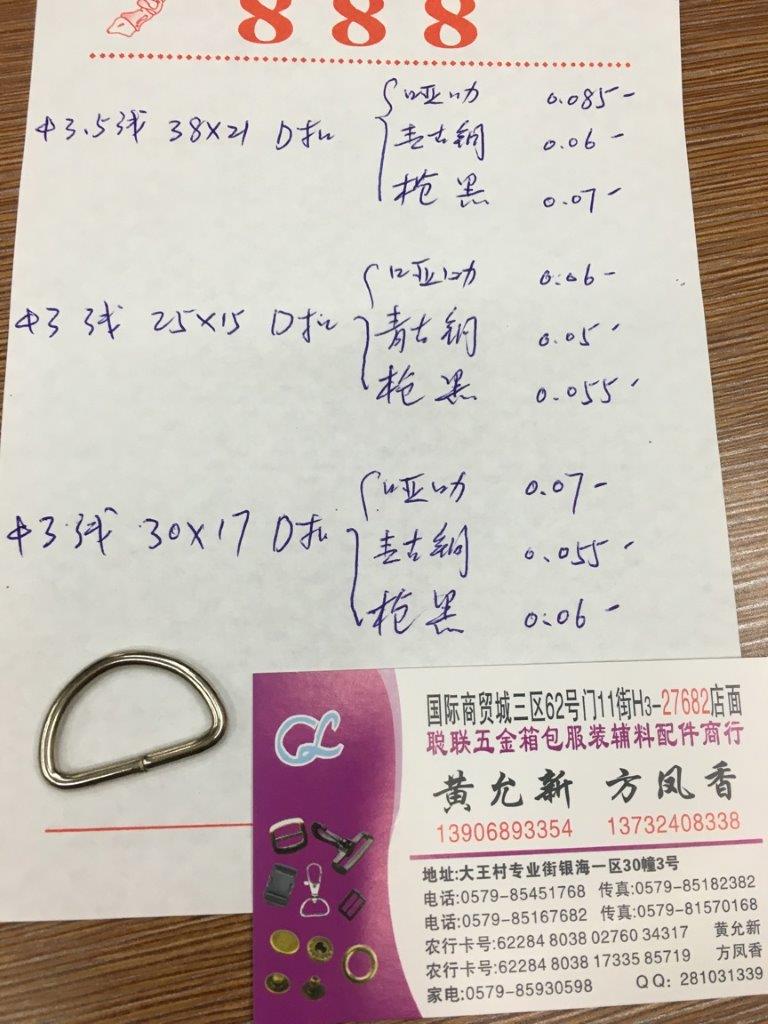 888
φ3.5线 38×21 D扣
哑叻 0.085-
青古铜 0.06-
枪黑 0.07-
φ3线 25×15 D扣
哑叻 0.06-
青古铜 0.05-
枪黑 0.055-
φ3线 30×17 D扣
哑叻 0.07-
青古铜 0.055-
枪黑 0.06-
CL
国际商贸城三区62号门11街H3-27682店面
聪联五金箱包服装辅料配件商行
黄允新 方凤香
13906893354 13732408338
地址:大王村专业街银海一区30幢3号
电话:0579-85451768 传真:0579-85182382
电话:0579-85167682 传真:0579-81570168
农行卡号:62284 8038 02760 34317 黄允新
农行卡号:62284 8038 17335 85719 方凤香
家电:0579-85930598 QQ:281031339